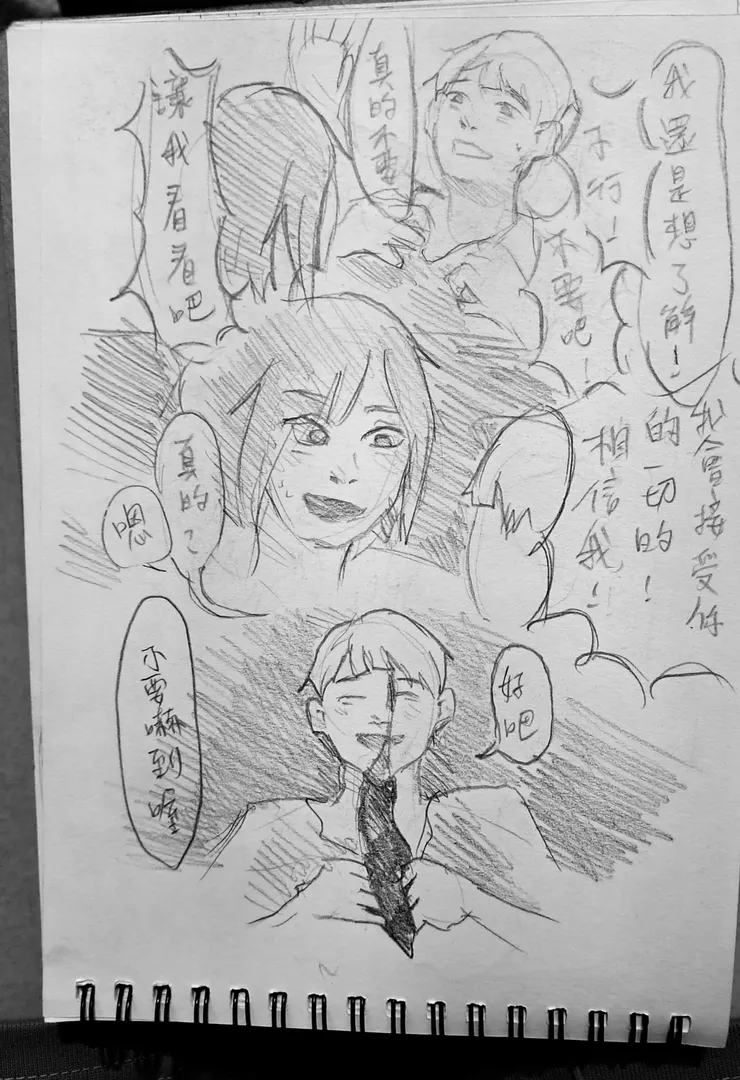 我還是想了解！
不行！
不要吧！
真的不要
讓我看看吧
我會接受你
的一切的！
相信我！
真的？
嗯
好吧
不要嚇到喔